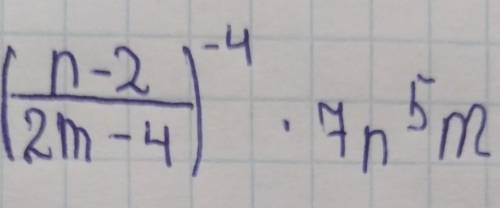 (n-2/2m-4)^-4 · 7n^5m